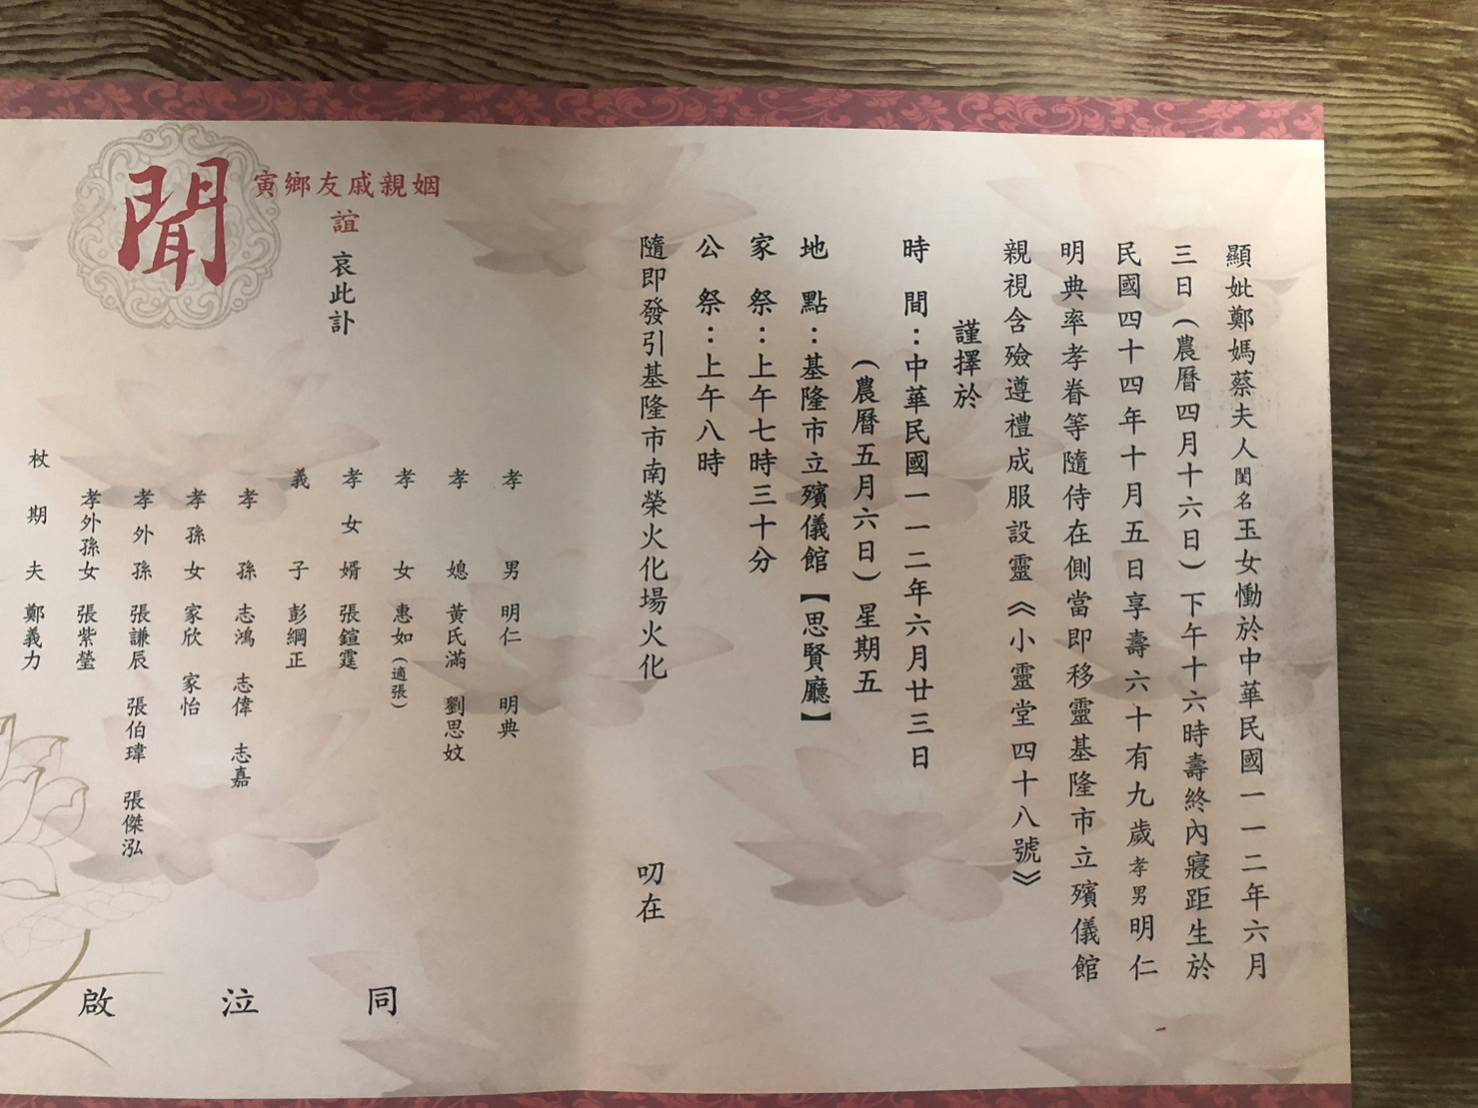 顯妣鄭媽蔡夫人閨名玉女慟於中華民國一一二年六月
三日(農曆四月十六日)下午十六時壽終內寢距生於
民國四十四年十月五日享壽六十有九歲孝男明仁
明典率孝眷等隨侍在側當即移靈基隆市立殯儀館
親視含殮遵禮成服設靈《小靈堂四十八號》
謹擇於
時間:中華民國一一二年六月廿三日
(農曆五月六日)星期五
地點:基隆市立殯儀館【思賢廳】
家祭:上午七時三十分
公祭:上午八時
隨即發引基隆市南榮火化場火化 叨在
姻親戚友鄉寅
誼
哀此訃
聞
孝男 明仁 明典
孝媳 黃氏滿 劉思妏
孝女 惠如(適張)
孝女婿 張鎧霆
義子 彭綱正
孝孫 志鴻 志偉 志嘉
孝孫女 家欣 家怡
孝外孫 張謙辰 張伯瑋 張傑泓
孝外孫女 張紫瑩
杖期夫 鄭義力
同泣啟